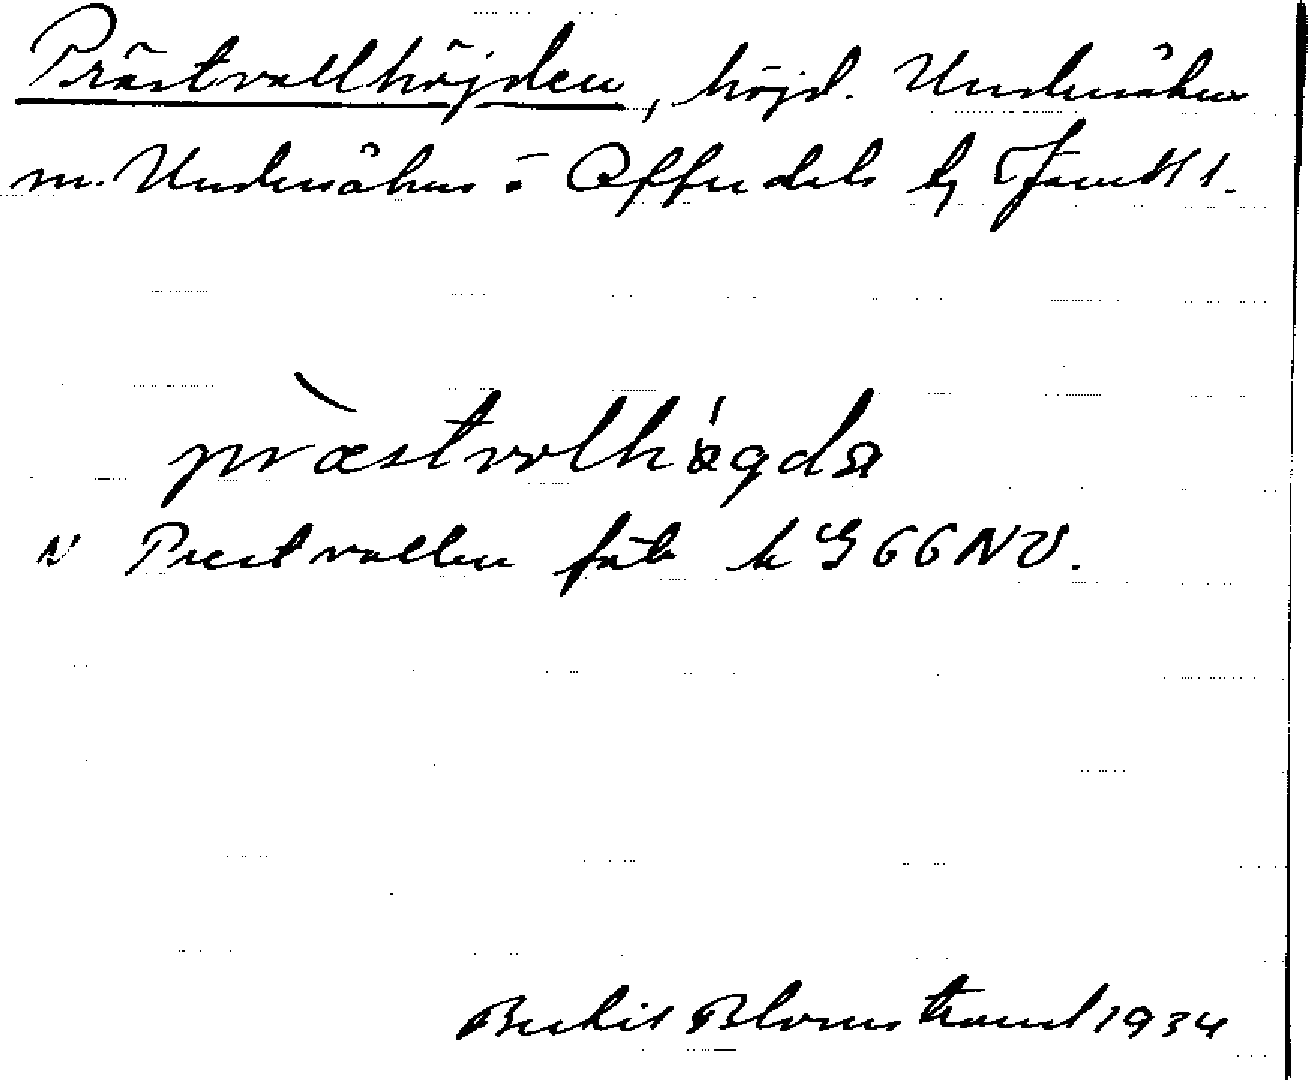 Prästvallhöjden, höjd. Undersåkers
m. Undersåkers o Offerdals tg Jämtl l.
præstvolhøgda
N Prestvallen fäb k G 66 NV.
Bertil Blomstrand 1934